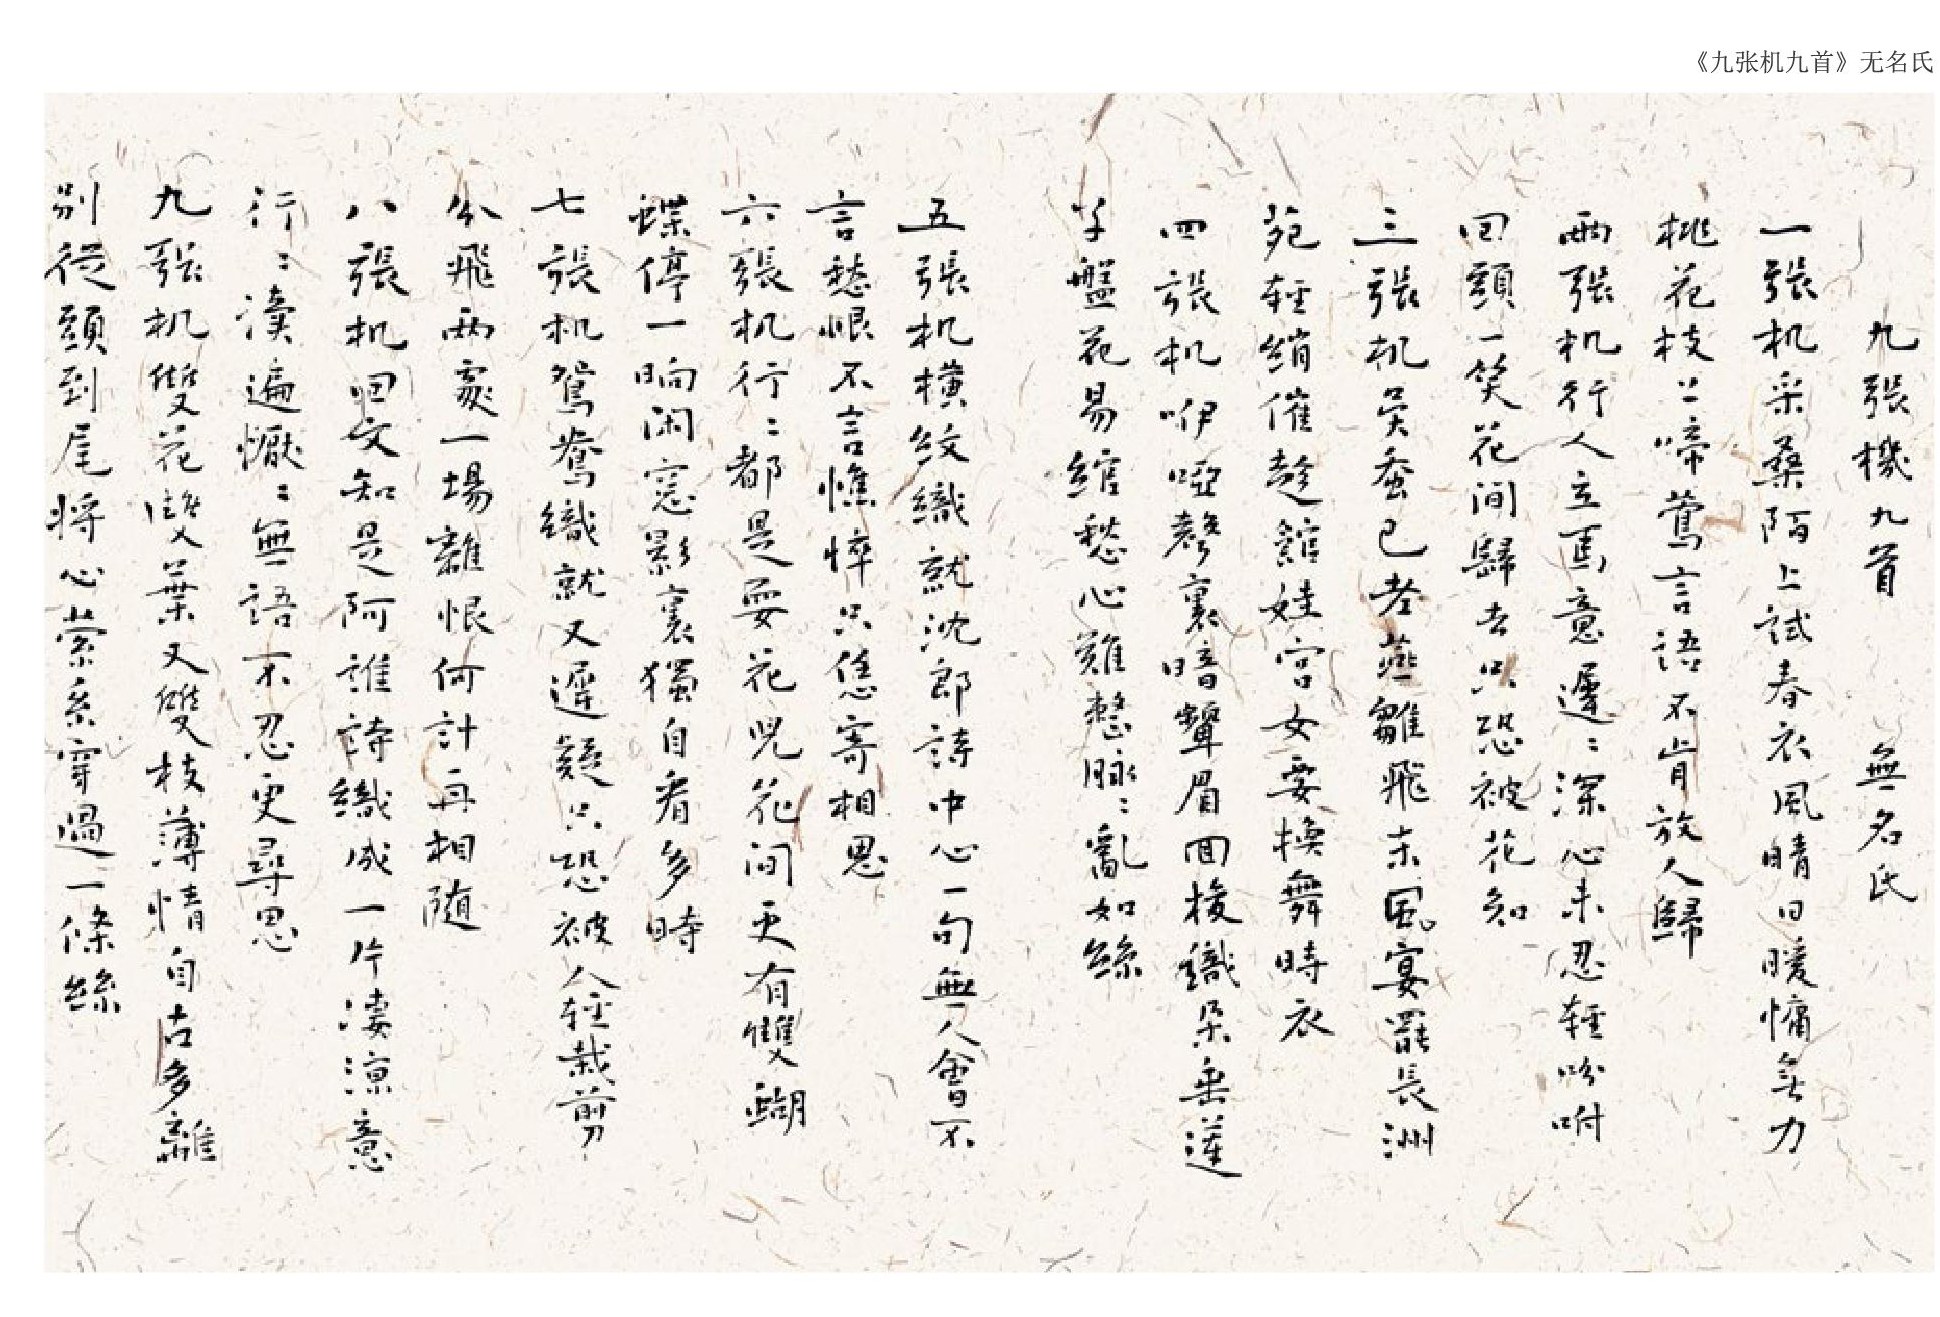 《九张机九首》无名氏
九張機九首 無名氏
一張机采桑陌上試春衣風晴日暖慵無力
桃花枝上啼鶯言語不肯放人歸
兩張机行人立馬意遲〻深心未忍輕吩咐
回頭一笑花间歸去只恐被花知
三張机吳蚕已老燕雛飛东風宴罷長洲
苑輕綃催趁館娃宫女要換舞時衣
四張机咿啞聲裏暗顰眉回梭織朵垂蓮
子盤花易綰愁心難整脉〻亂如絲
五張机橫紋織就沈郎詩中心一句無人會不
言愁恨不言憔悴只恁寄相思
六張机行〻都是耍花兒花间更有雙蝴
蝶停一晌闲窓影裏獨自看多時
七張机鴛鴦織就又遲疑只恐被人輕裁剪
分飛兩處一場離恨何計再相随
八張机回文知是阿誰詩織成一片凄凉意
行〻讀遍懨〻無語不忍更尋思
九張机雙花雙葉又雙枝薄情自古多離
别從頭到尾将心縈系穿過一條絲